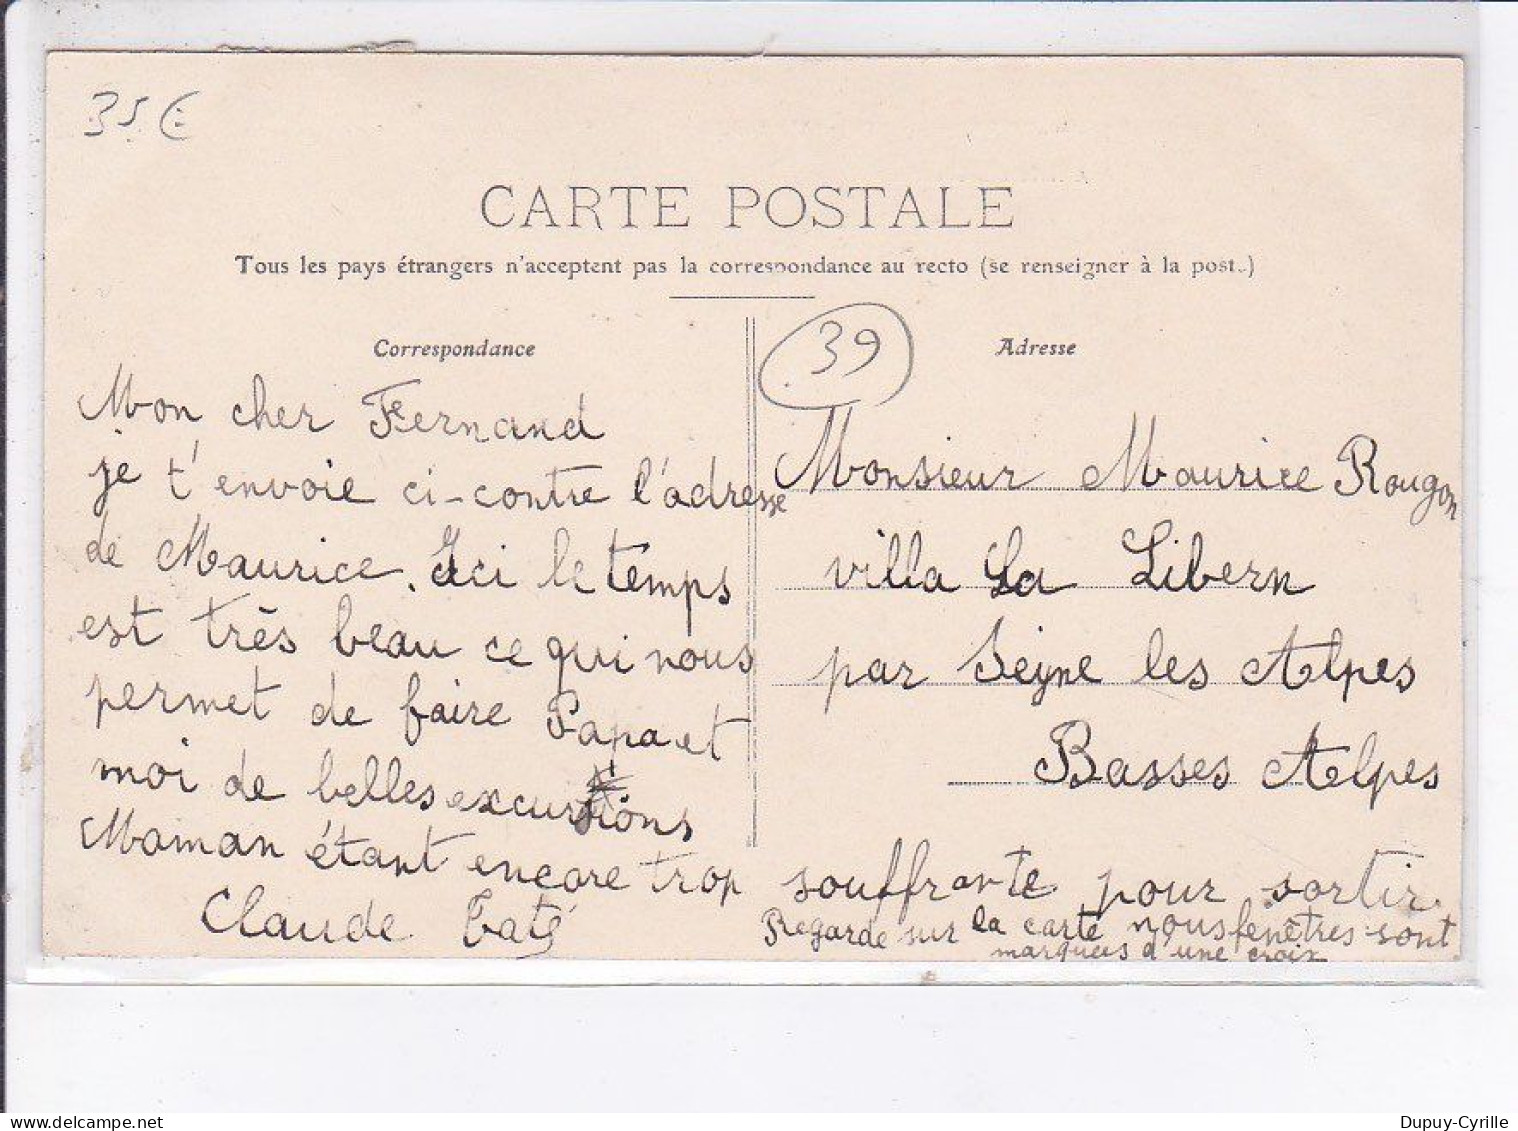 35 €
CARTE POSTALE
Tous les pays étrangers n'acceptent pas la correspondance au recto (se renseigner à la poste.)
Correspondance
39
Adresse
Mon cher Fernand
je t'envoie ci-contre l'adresse
de Maurice. Ici le temps
est très beau ce qui nous
permet de faire Papa et
moi de belles excursions
Maman étant encore trop souffrante pour sortir.
Claude Taté
Monsieur Maurice Rougon
villa La Libern
par Seyne les Alpes
Basses Alpes
Regarde sur la carte nous fenêtres sont
marquées d'une croix
Dupuy-Cyrille